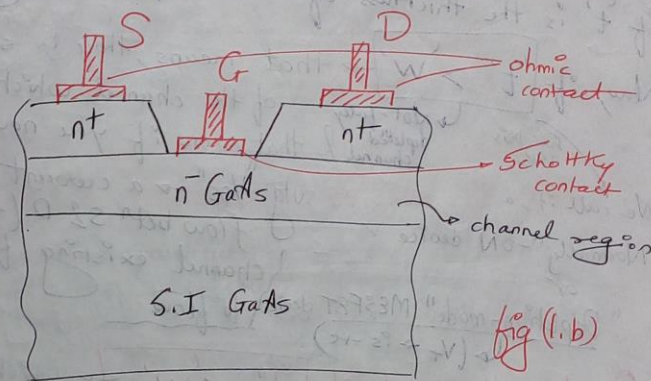 S
D
G
ohmic
contact
n+
n+
Schottky
contact
n- GaAs
channel region
S.I GaAs
fig (1.b)